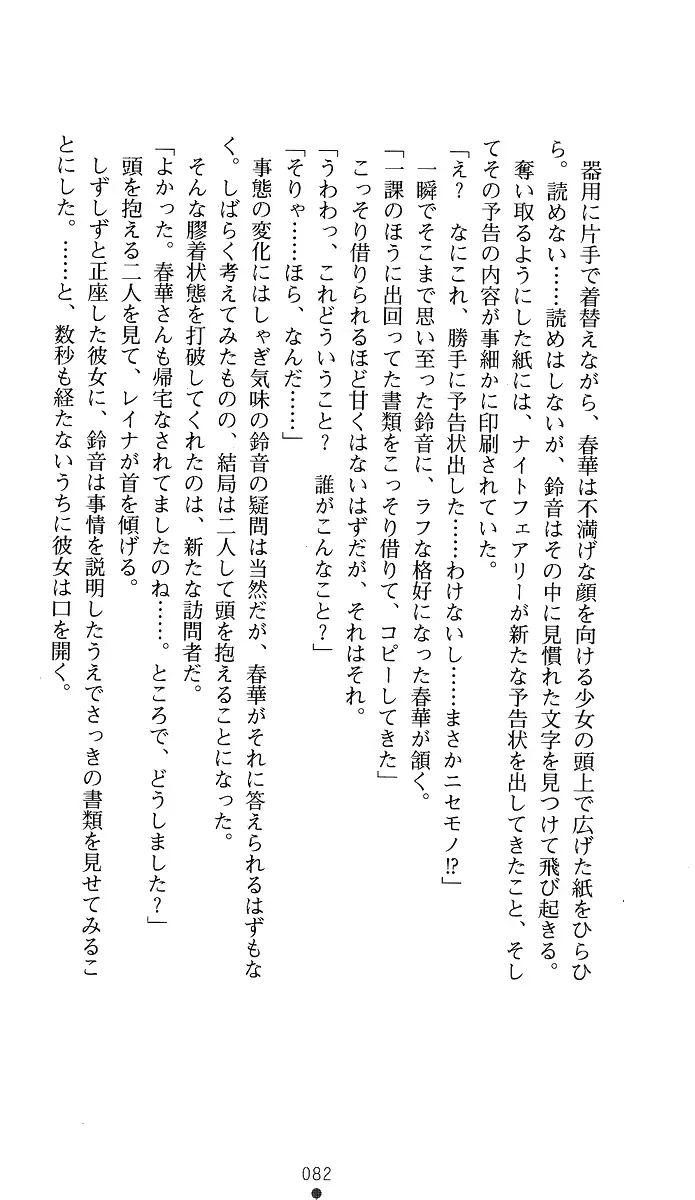 器用に片手で着替えながら、春華は不満げな顔を向ける少女の頭上で広げた紙をひらひ
ら。読めない……読めはしないが、鈴音はその中に見慣れた文字を見つけて飛び起きる。
　奪い取るようにした紙には、ナイトフェアリーが新たな予告状を出してきたこと、そし
てその予告の内容が事細かに印刷されていた。
「え？　なにこれ、勝手に予告状出した……わけないし……まさかニセモノ!?」
　一瞬でそこまで思い至った鈴音に、ラフな格好になった春華が頷く。
「一課のほうに出回ってた書類をこっそり借りて、コピーしてきた」
　こっそり借りられるほど甘くはないはずだが、それはそれ。
「うわわっ、これどういうこと？　誰がこんなこと？」
「そりゃ……ほら、なんだ……」
　事態の変化にはしゃぎ気味の鈴音の疑問は当然だが、春華がそれに答えられるはずもな
く。しばらく考えてみたものの、結局は二人して頭を抱えることになった。
　そんな膠着状態を打破してくれたのは、新たな訪問者だ。
「よかった。春華さんも帰宅なされてましたのね……。ところで、どうしました？」
　頭を抱える二人を見て、レイナが首を傾げる。
　しずしずと正座した彼女に、鈴音は事情を説明したうえでさっきの書類を見せてみるこ
とにした。……と、数秒も経たないうちに彼女は口を開く。
082